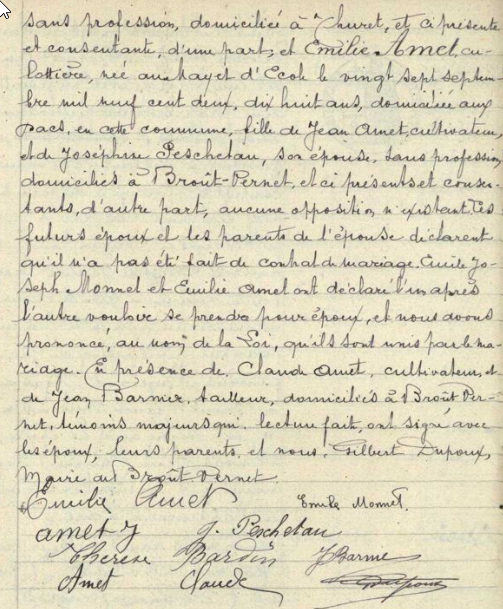 sans profession, domiciliée à Thuret, et ci présente
et consentante, d'une part; et Emilie Amet, cu-
lottière, née au Mayet d'Ecole le vingt sept septem-
bre mil neuf cent deux, dix huit ans, domiciliée aux
Pacs, en cette commune, fille de Jean Amet, cultivateur,
et de Joséphine Peschetau, son épouse, sans profession
domiciliés à Broût-Vernet, et ci présents et consen-
tants, d'autre part, aucune opposition n'existant. Les
futurs époux et les parents de l'épouse déclarent
qu'il n'a pas été fait de contrat de mariage. Emile Jo-
seph Monnet et Emilie Amet ont déclaré l'un après
l'autre vouloir se prendre pour époux, et nous avons
prononcé, au nom de la Loi, qu'ils sont unis par le ma-
riage. En présence de Claude Amet, cultivateur, et
de Jean Barnier, tailleur, domiciliés à Broût Ver-
net, témoins majeurs qui, lecture faite, ont signé avec
les époux, leurs parents, et nous, Gilbert Dupoux,
Maire du Broût Vernet
Emilie Amet Emile Monnet.
amet J J. Peschetau
Therese Bardin
Amet Claude